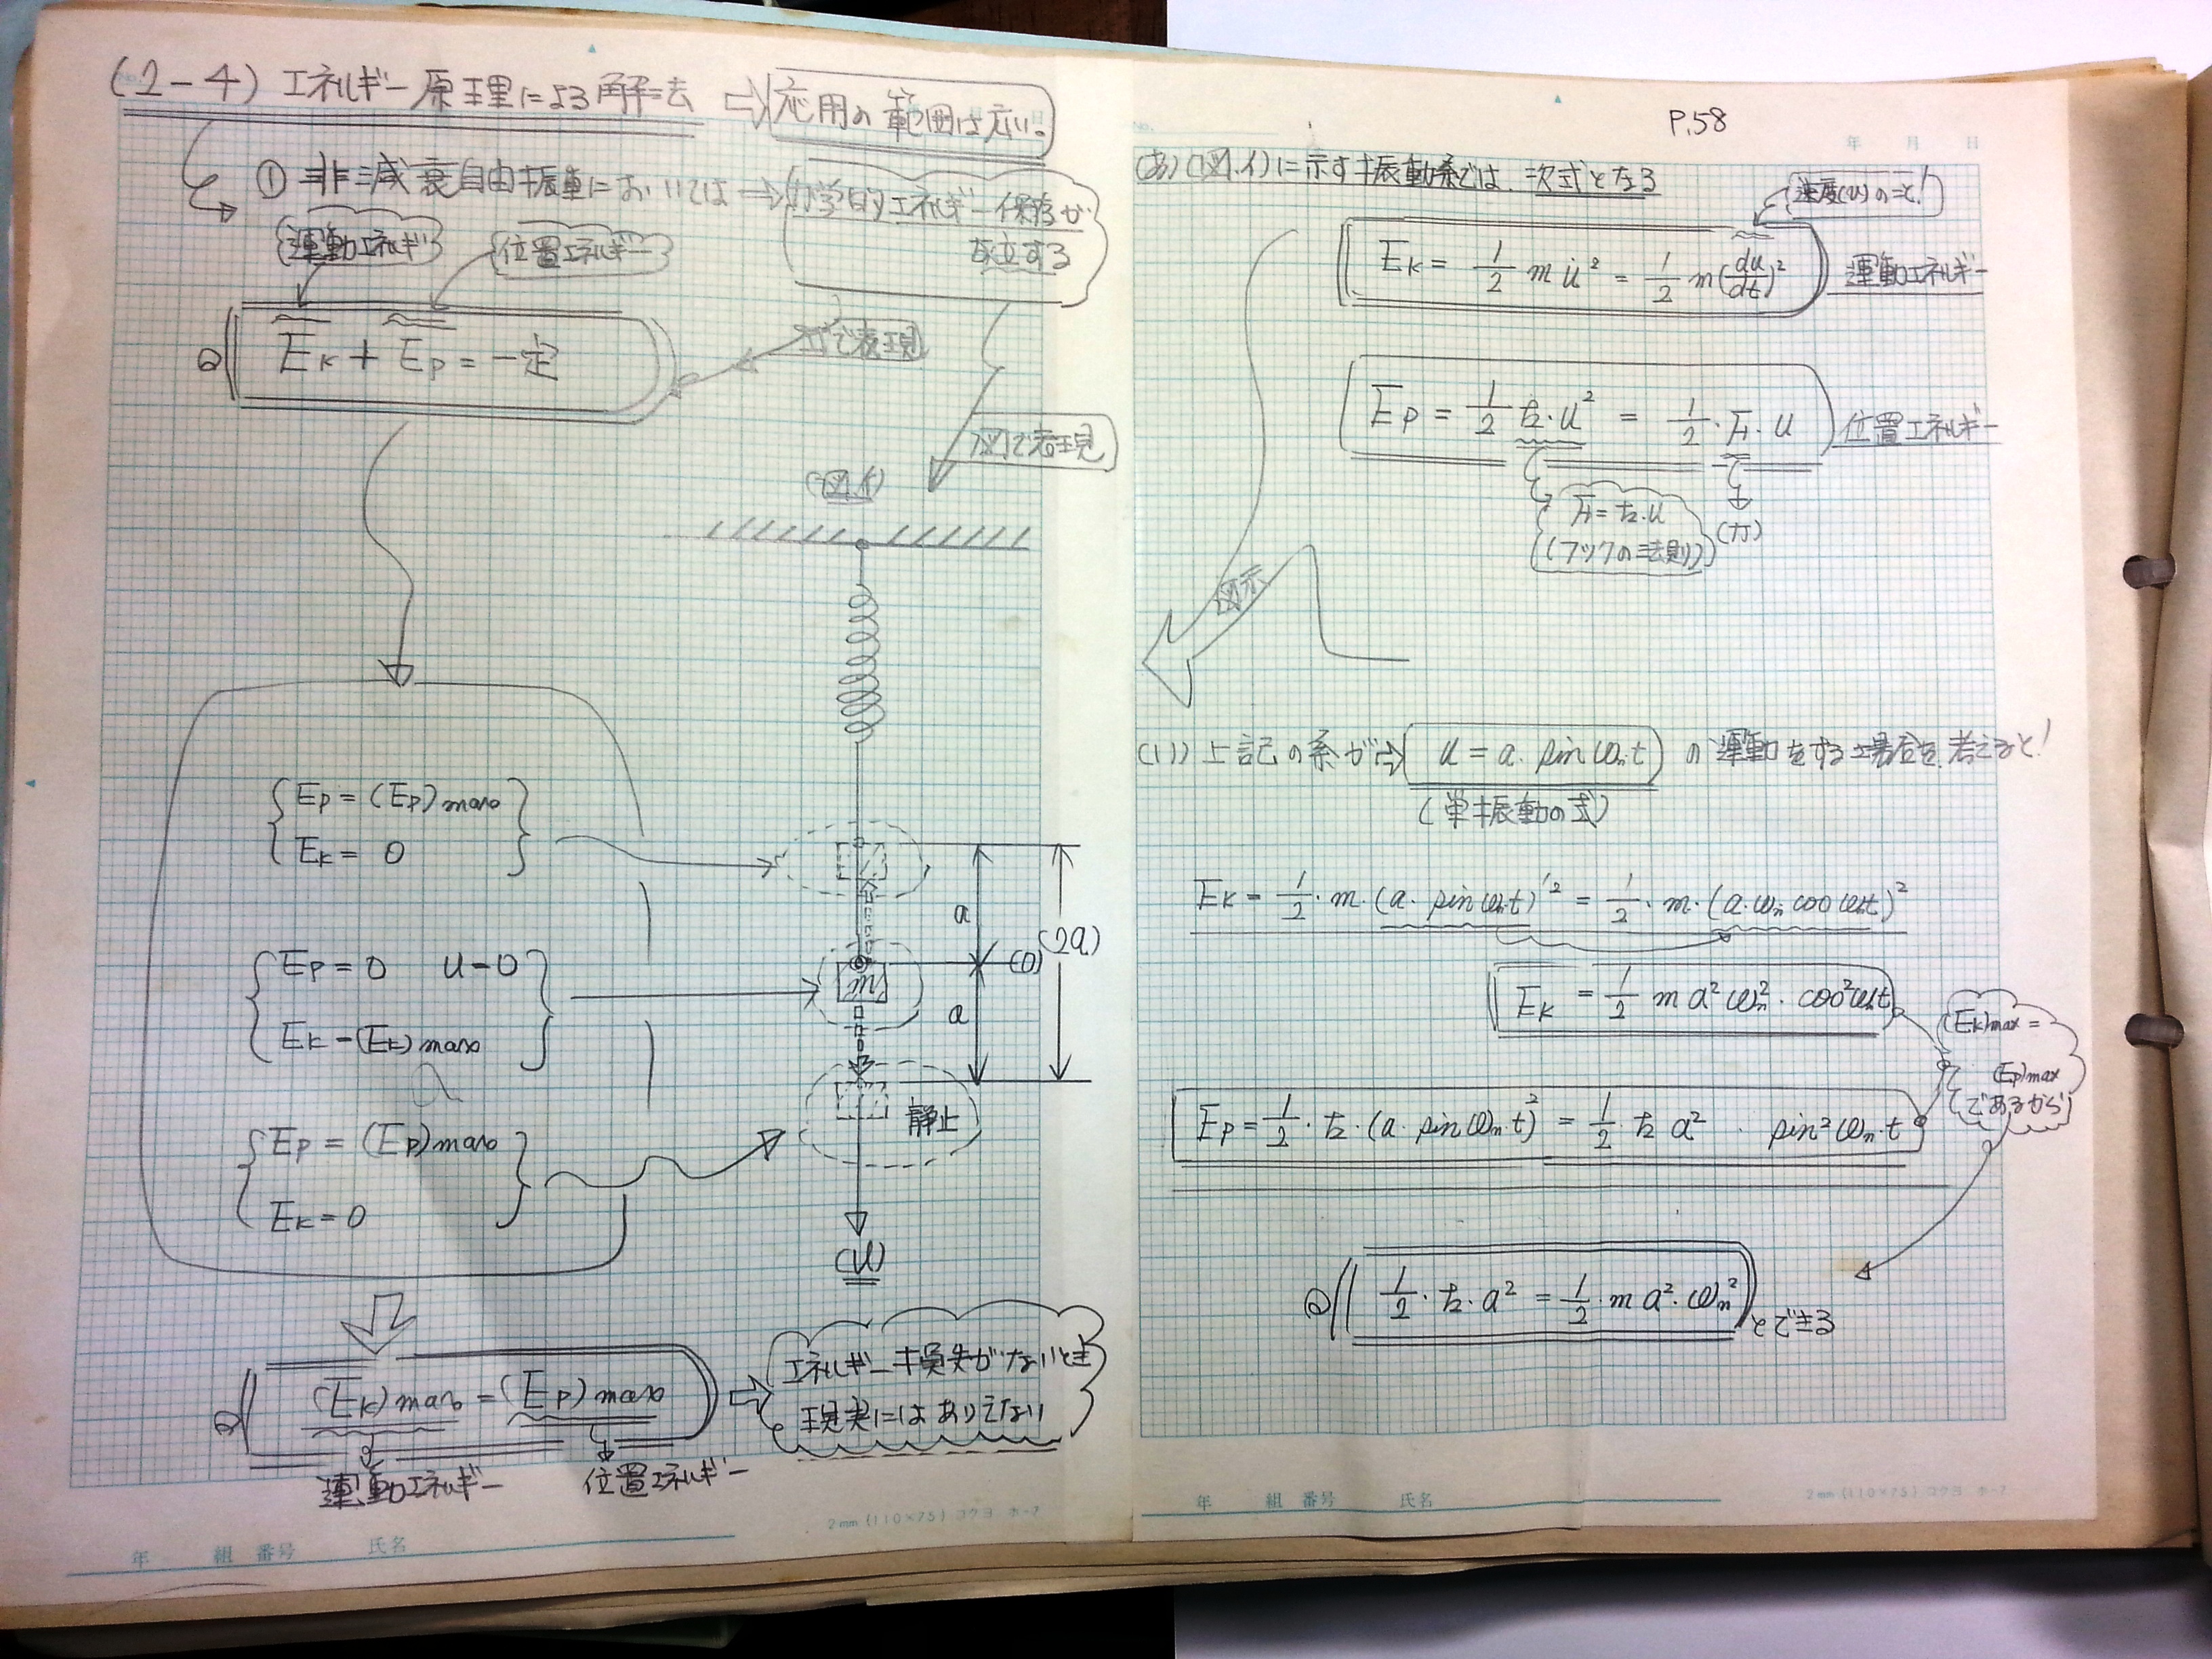 (2-4) エネルギー原理による解法 ⇨ 応用の範囲は広い。
① 非減衰自由振動においては ⇨ 力学的エネルギー保存が
成立する
運動エネルギ
位置エネルギー
Ek + Ep = 一定
式で表現
図で表現
(図.イ)
Ep = (Ep)max
Ek = 0
a
(0)
(2a)
Ep = 0 u-0
Ek -(Ek)max
m
a
Ep = (Ep)max
Ek = 0
静止
(u)
(Ek)max = (Ep)max
運動エネルギー
位置エネルギー
エネルギー損失がないとき
現実にはありえない
年 組 番号 氏名
2mm (110×75) コクヨ ホ-7
P.58
No.
年 月 日
(あ) (図.イ)に示す振動系では、次式となる
速度(u)のこと!
Ek = 1/2 m u̇² = 1/2 m(du/dt)²
運動エネルギー
Ep = 1/2 k・u² = 1/2・F・u
位置エネルギー
F = k・u
(フックの法則)
(力)
図示
(1)) 上記の系が⇨ u = a・sin ωn t の運動をする場合を考えると!
(単振動の式)
Ek = 1/2・m・(a・sin ωn t)'² = 1/2・m・(a・ωn cos ωn t)²
Ek = 1/2 m a² ωn²・cos² ωn t
(Ek)max =
(Ep)max
であるから
Ep = 1/2・k・(a・sin ωn t)² = 1/2 k a²・sin² ωn・t
1/2・k・a² = 1/2・m a²・ωn²
とできる
年 組 番号 氏名
2mm (110×75) コクヨ ホ-7